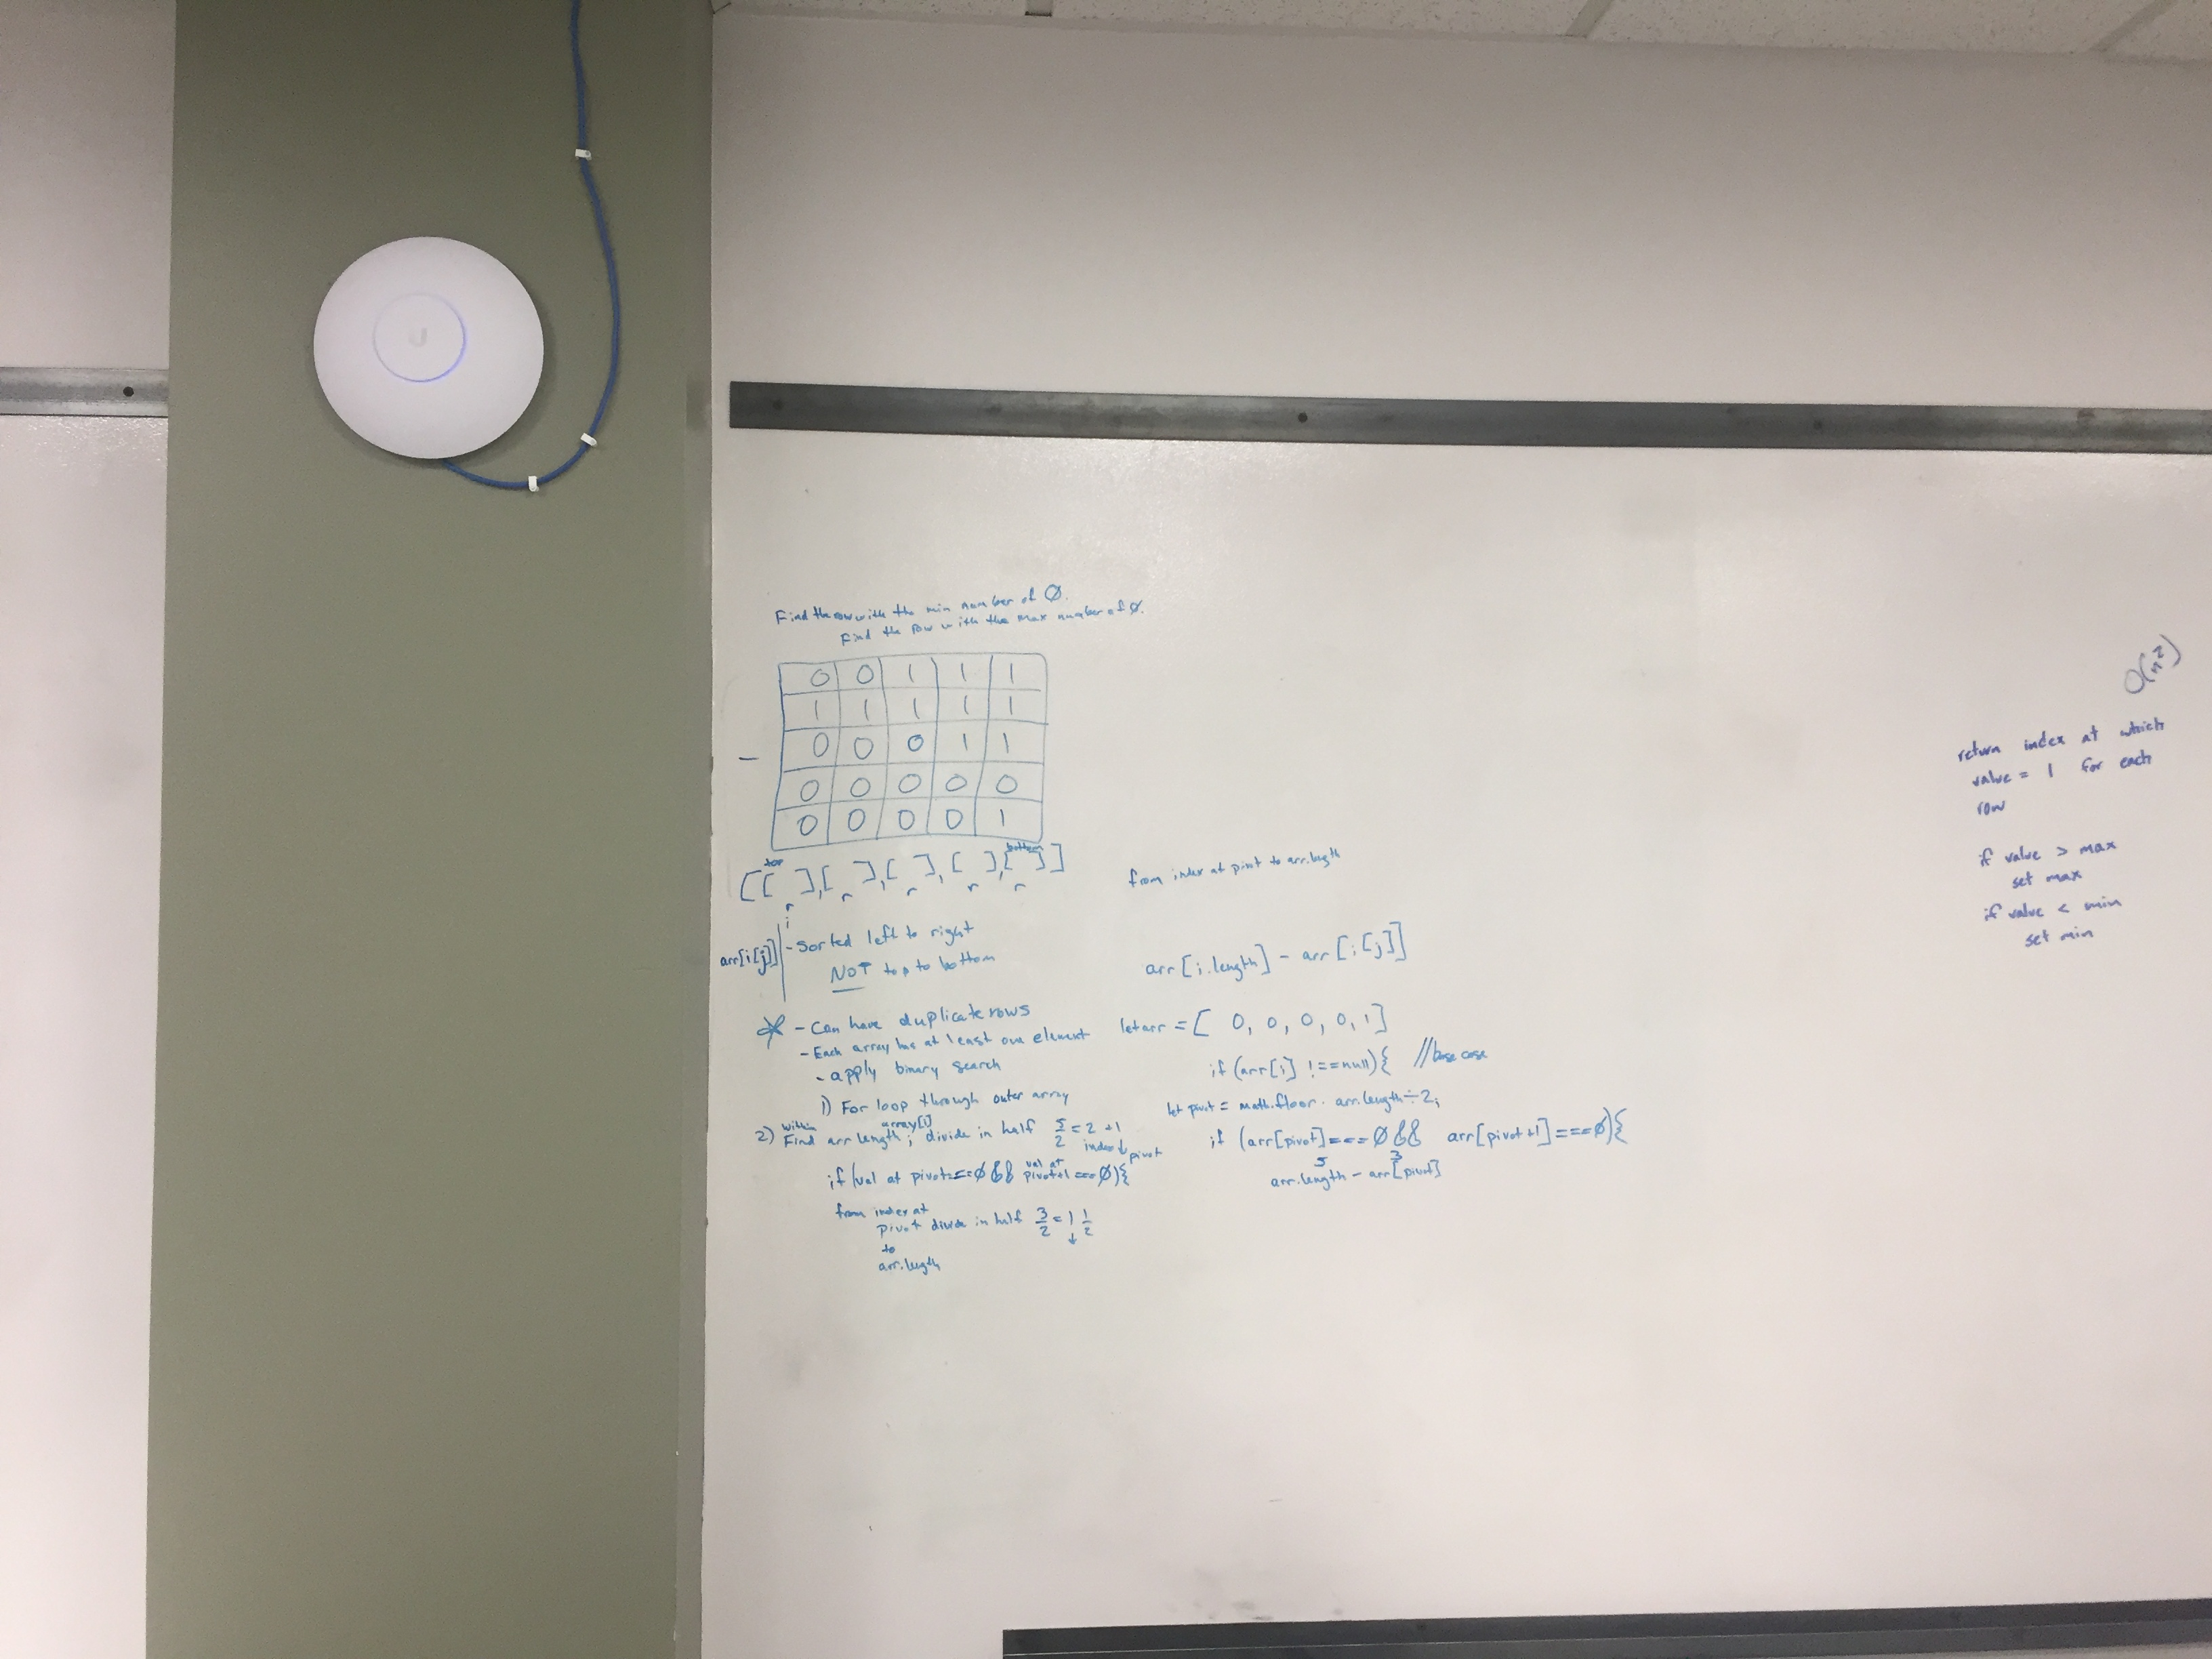 Find the row with the min number of Ø.
Find the row with the max number of Ø.
0 0 1 1 1
1 1 1 1 1
0 0 0 1 1
0 0 0 0 0
0 0 0 0 1
top bottom
[[ ],[ ],[ ],[ ],[ ]]
r r r r r
i
arr[i[j]]
- Sorted left to right
NOT top to bottom
- Can have duplicate rows
- Each array has at least one element
- apply binary search
1) For loop through outer array
within array[i]
2) Find arr length; divide in half 5/2 = 2 +1
index pivot
if (val at pivot === Ø && val at pivot+1 === Ø){
from index at
pivot divide in half 3/2 = 1 1/2
to
arr.length
from index at pivot to arr.length
arr[i.length] - arr[i[j]]
let arr = [ 0, 0, 0, 0, 1]
if (arr[i] !== null){ //base case
let pivot = math.floor. arr.length ÷ 2;
if (arr[pivot] === Ø && arr[pivot+1] === Ø){
5 3
arr.length - arr[pivot]
O(n²)
return index at which
value = 1 for each
row
if value > max
set max
if value < min
set min